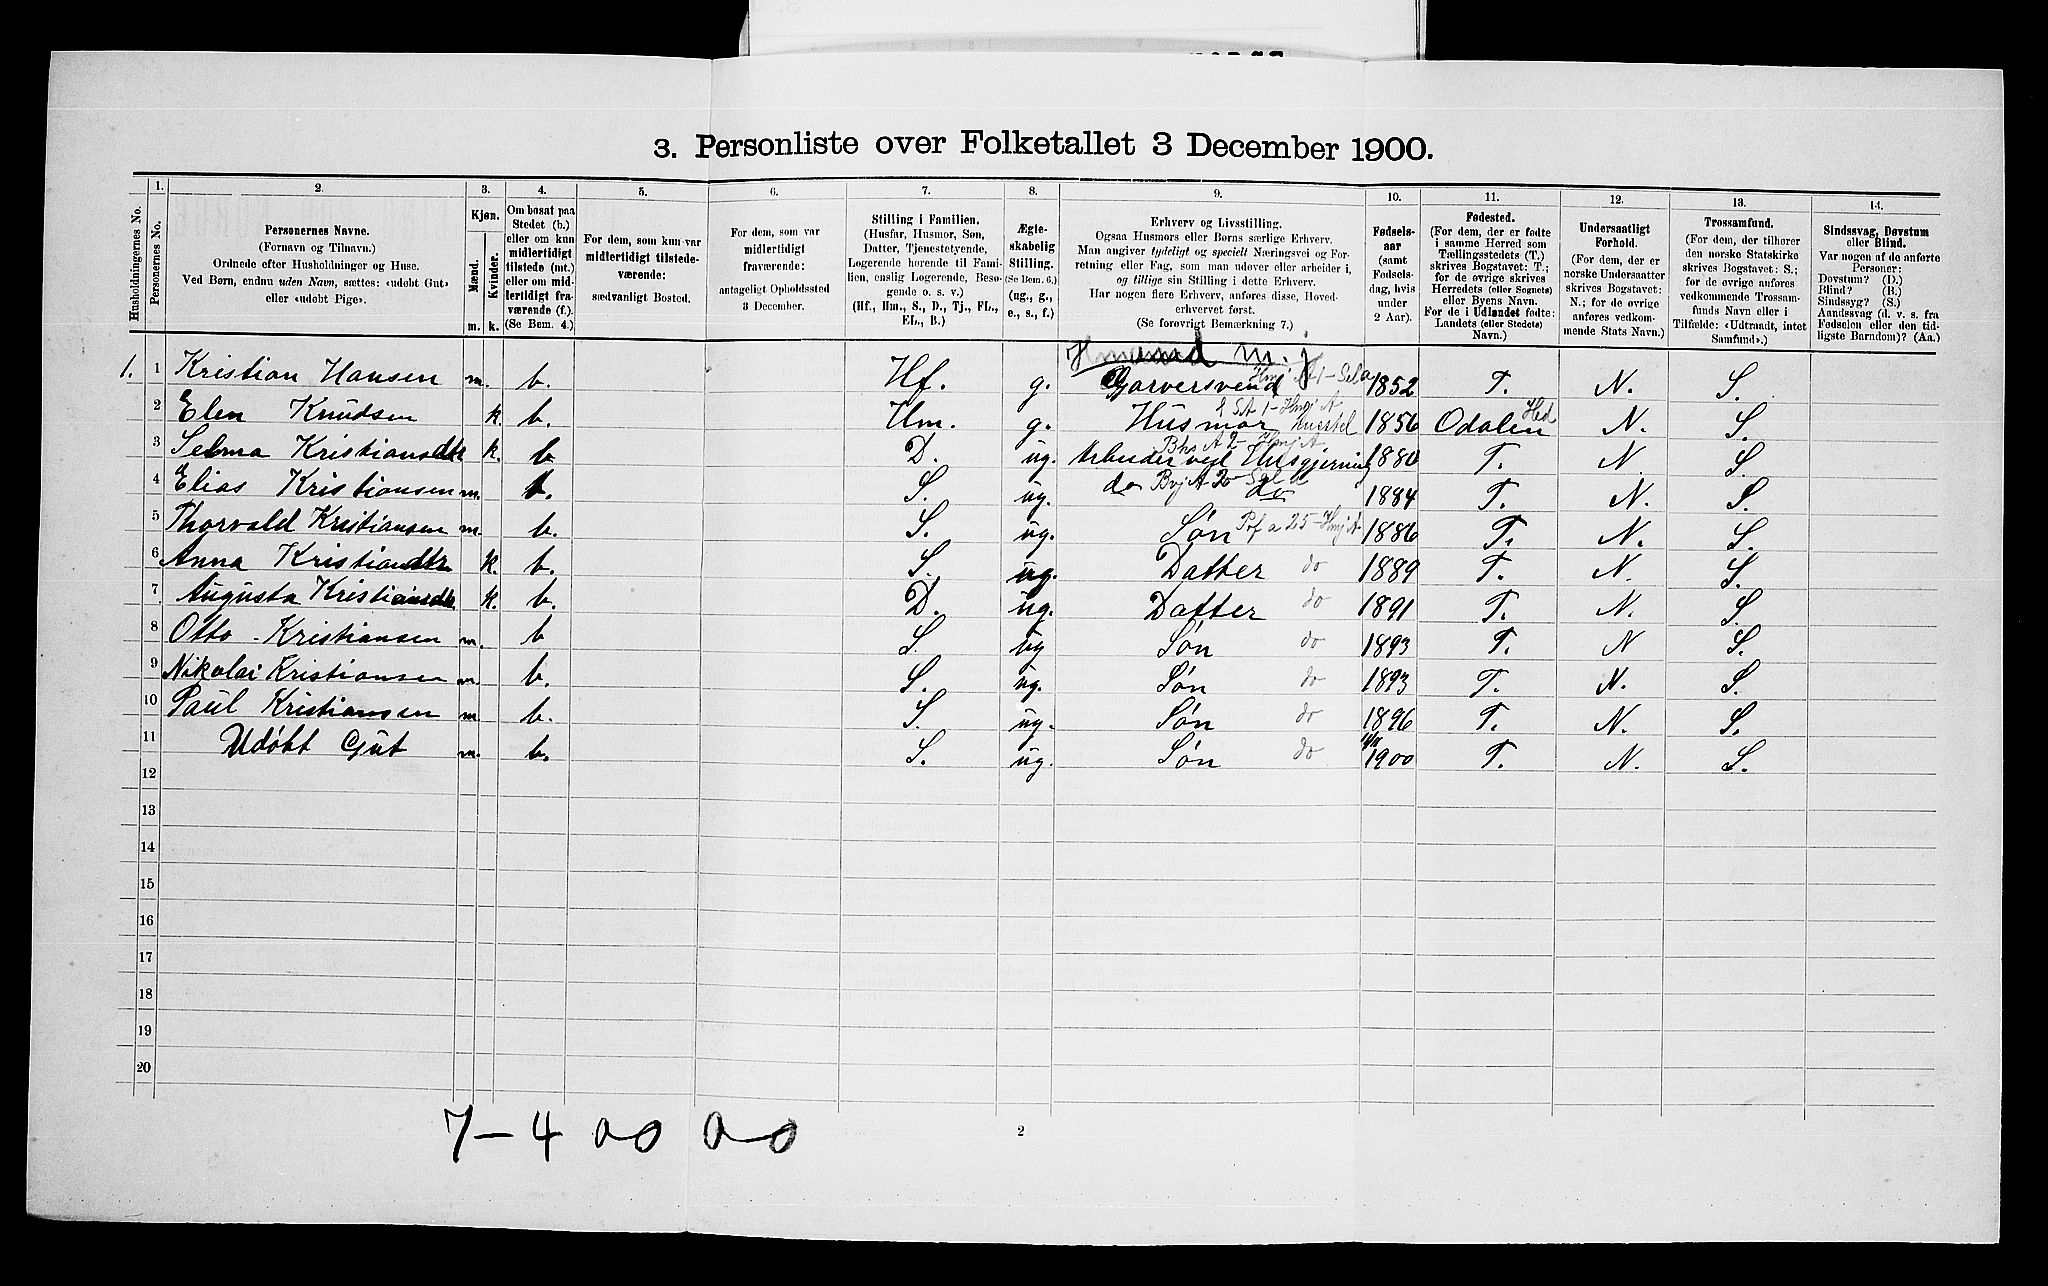 3. Personliste over Folketallet 3 December 1900.
Husholdningernes No.
1. Personernes No.
2. Personernes Navne.
(Fornavn og Tilnavn.)
Ordnede efter Husholdninger og Huse.
Ved Børn, endnu uden Navn, sættes: «udøbt Gut»
eller «udøbt Pige».
3. Kjøn.
Mænd. Kvinder.
m. k.
4. Om bosat paa
Stedet (b.)
eller om kun
midlertidigt
tilstede (mt.)
eller om mid-
lertidigt fra-
værende (f.).
(Se Bem. 4.)
5. For dem, som kun var
midlertidigt tilstede-
værende:
sædvanligt Bosted.
6. For dem, som var
midlertidigt
fraværende:
antageligt Opholdssted
3 December.
7. Stilling i Familien.
(Husfar, Husmor, Søn,
Datter, Tjenestetyende,
Logerende hørende til Fami-
lien, enslig Logerende, Besø-
gende o. s. v.)
(Hf., Hm., S., D., Tj., FL.,
EL., B.)
8. Ægte-
skabelig
Stilling.
(Se Bem. 6.)
(ug., g.,
e., s., f.)
9. Erhverv og Livsstilling.
Ogsaa Husmors eller Børns særlige Erhverv.
Man angiver tydeligt og specielt Næringsvei og For-
retning eller Fag, som man udøver eller arbeider i,
og tillige sin Stilling i dette Erhverv.
Har nogen flere Erhverv, anføres disse, Hoved-
erhvervet først.
(Se forøvrigt Bemærkning 7.)
10. Fødsels-
aar
(samt
Fødsels-
dag, hvis
under
2 Aar).
11. Fødested.
(For dem, der er fødte
i samme Herred som
Tællingsstedets (T.)
skrives Bogstavet: T.;
for de øvrige skrives
Herredets (eller Sognets)
eller Byens Navn.
For de i Udlandet fødte:
Landets (eller Stedets)
Navn.)
12. Undersaatligt
Forhold.
(For dem, der er
norske Undersaatter
skrives Bogstavet:
N.; for de øvrige
anføres vedkom-
mende Stats Navn.)
13. Trossamfund.
(For dem, der tilhører
den norske Statskirke
skrives Bogstavet: S.;
for de øvrige anføres
vedkommende Trossam-
funds Navn eller i
Tilfælde: «Udtraadt, intet
Samfund».)
14. Sindssvag, Døvstum
eller Blind.
Var nogen af de anførte
Personer:
Døvstum? (D.)
Blind? (B.)
Sindssyg? (S.)
Aandssvag (d. v. s. fra
Fødselen eller den tid-
ligste Barndom)? (Aa.)
1. 1 Kristian Hansen m. b. Hf. g. Garversvend 1852 T. N. S.
2 Elen Knudsen k. b. Hm. g. Husmor Husstel 1856 Odalen Hed N. S.
3 Selma Kristiansdtr k. b. D. ug. Arbeider ved Husgjerning T. N. S.
4 Elias Kristiansen m. b. S. ug. do do 1884 T. N. S.
5 Thorvald Kristiansen m. b. S. ug. Søn 1886 T. N. S.
6 Anna Kristiandtr k. b. S. ug. Datter do 1889 T. N. S.
7 Augusta Kristiansdtr k. b. D. ug. Datter do 1891 T. N. S.
8 Otto Kristiansen m. b S. ug Søn do 1893 T. N S.
9 Nikolai Kristiansen m. b. S. ug. Søn do 1893 T. N. S.
10 Paul Kristiansen m b. S. ug. Søn do 1896 T. N. S.
11 Udøbt Gut m. b. S. ug. Søn do 1900 T. N. S.
12
13
14
15
16
17
18
19
20
7-4 00 0-0
2